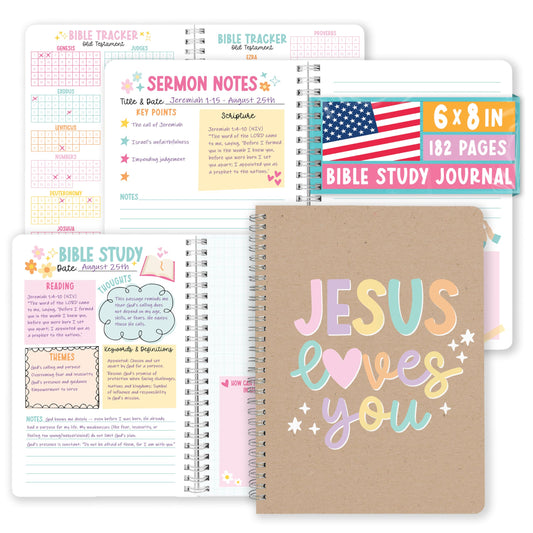 BIBLE TRACKER
Old Testament
GENESIS
JUDGES
EXODUS
LEVITICUS
NUMBERS
DEUTERONOMY
JOSHUA
BIBLE TRACKER
Old Testament
EZRA
PROVERBS
SERMON NOTES
Title & Date Jeremiah 1-15 - August 25th
KEY POINTS
The call of Jeremiah
Israel's unfaithfulness
Impending judgement
Scripture
Jeremiah 1:4-10 (NIV)
"The word of the LORD came
to me, saying, "Before I formed
you in the womb I knew you,
before you were born I set
you apart; I appointed you as
a prophet to the nations."
NOTES
6 x 8 IN
182 PAGES
BIBLE STUDY JOURNAL
BIBLE STUDY
Date August 25th
READING
Jeremiah 1:4-10 (NIV)
"The word of the LORD came
to me, saying, "Before I formed
you in the womb I knew you,
before you were born I set
you apart; I appointed you as
a prophet to the nations."
THOUGHTS
This passage reminds me
that God's calling does
not depend on my age,
skills, or fears. He equips
those He calls.
THEMES
God's calling and purpose
Overcoming fear and insecurity
God's presence and guidance
Empowerment to serve
Keywords & Definitions
Appointed: Chosen and set
apart by God for a purpose.
Rescue: God's promise of
protection when facing challenges.
Nations and kingdoms: Symbol
of influence and responsibility
in God's mission.
NOTES God knows my details — even before I was born, He already
had a purpose for my life. My weaknesses (like fear, insecurity, or
feeling too young/inexperienced) do not limit God's plan.
God's presence is constant: "Do not be afraid of them, for I am with you"
JESUS
loves
you